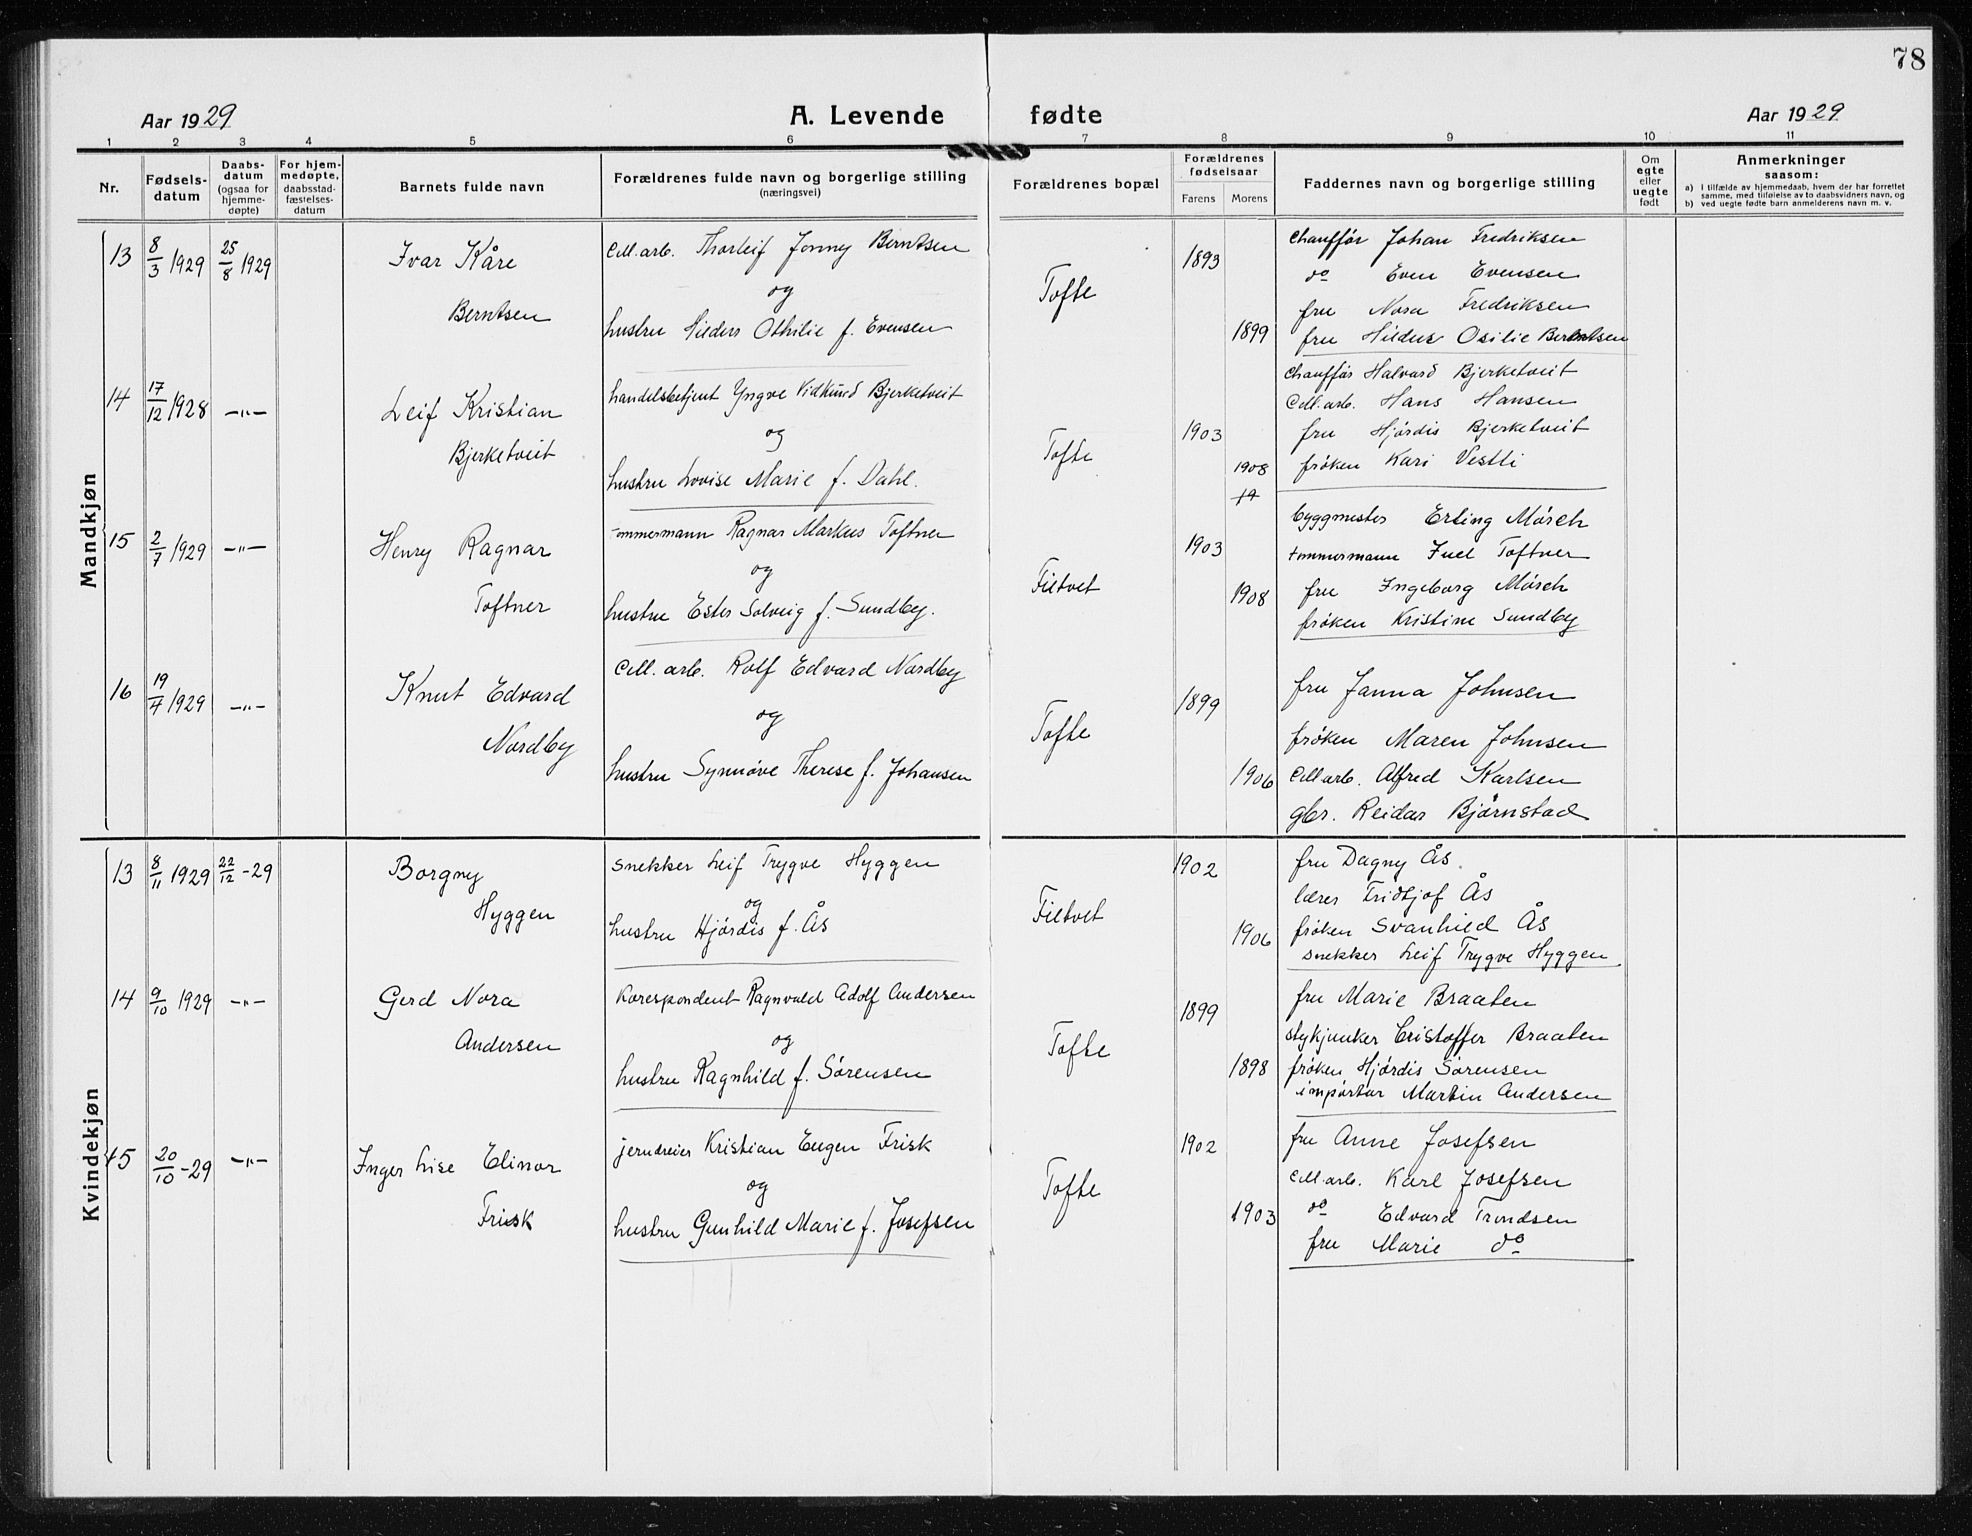 78
Aar 1929 A. Levende fødte Aar 1929
1 2 3 4 5 6 7 8 9 10 11
Nr.
Fødsels-
datum
Daabs-
datum
(ogsaa for
hjemme-
døpte)
For hjem-
medøpte,
daabsstad-
fæstelses-
datum
Barnets fulde navn
Forældrenes fulde navn og borgerlige stilling
(næringsvei)
Forældrenes bopæl
Forældrenes
fødselsaar
Farens Morens
Faddernes navn og borgerlige stilling
Om
egte
eller
uegte
født
Anmerkninger
saasom:
a) I tilfælde av hjemmedaab, hvem der har forrettet
samme, med tilføielse av to daabsvidners navn, og
b) ved uegte fødte barn anmelderens navn m. v.
Mandkjøn
13 8/3 1929 25/8 1929
Ivar Kåre
Berntsen
Cell. arb. Thorleif Jonny Berntsen
og
hustru Hildur Othilie f. Evensen
Tofte
1893
1899
Chauffør Johan Fredriksen
do Even Evensen
fru Nora Fredriksen
fru Hildur Osilie Berntsen
14 17/12 1928 -"-
Leif Kristian
Bjerketveit
handelsbetjent Yngve Vidkund Bjerketveit
og
hustru Lovise Marie f. Dahl.
Tofte
1903
1908
Chauffør Halvard Bjerketveit
Cell. arb. Hans Hansen
fru Hjørdis Bjerketveit
frøken Kari Vestli
15 2/7 1929 -"-
Henry Ragnar
Toftner
tømmermann Ragnar Markus Toftner
og
hustru Ester Solveig f. Sundby.
Filtvet
1903
1908
byggmester Erling Mørch
tømmermann Juel Toftner
fru Ingeborg Mørch
frøken Kristine Sundby
16 19/4 1929 -"-
Knut Edvard
Nordby
Cell. arb. Rolf Edvard Nordby
og
hustru Synnøve Therese f. Johansen
Tofte
1899
1906
fru Janna Johnsen
frøken Maren Johnsen
Cell arb. Alfred Karlsen
gbr. Reidar Bjørnstad
Kvindekjøn
13 8/11 1929 22/12 -29
Borgny
Hyggen
snekker Leif Trygve Hyggen
og
hustru Hjørdis f. Ås
Filtvet
1902
1906
fru Dagny Ås.
lærer Fridtjof Ås
frøken Svanhild Ås
snekker Leif Trygve Hyggen
14 9/10 1929 -"-
Gerd Nora
Andersen
Korespondent Ragnvald Adolf Andersen
og
hustru Ragnhild f. Sørensen
Tofte
1899
1898
fru Marie Braaten
stykjunker Cristoffer Braaten
frøken Hjørdis Sørensen
impørtør Martin Andersen
15 20/10 -29 -"-
Inger Lise Elinor
Frisk
jerndreier Kristian Eugen Frisk
og
hustru Gunhild Marie f. Josefsen
Tofte
1902
1903
fru Anne Josefsen
Cell. arb. Karl Josefsen
do Edvard Trondsen
fru Marie do